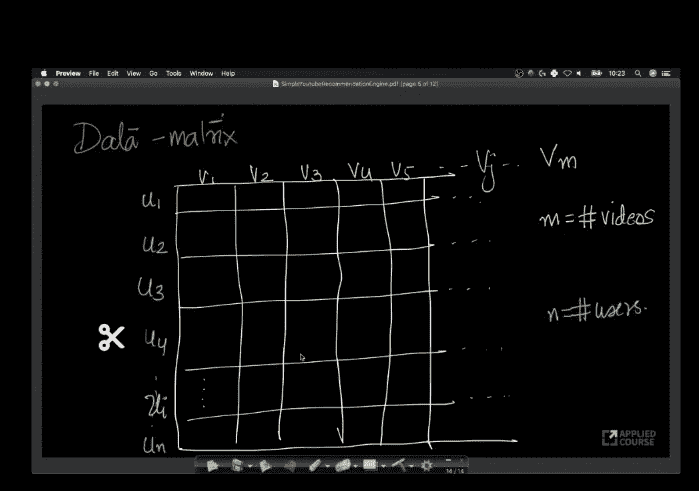 Preview File Edit View Go Tools Window Help 10:23
SimpleYoutubeRecommentationEngine.pdf (page 5 of 12)
Data - matrix
V1 V2 V3 V4 V5 - - Vj - - Vm
u1
m = # videos
u2
u3
n = # users.
u4
ui
un
APPLIED
COURSE
14 / 14